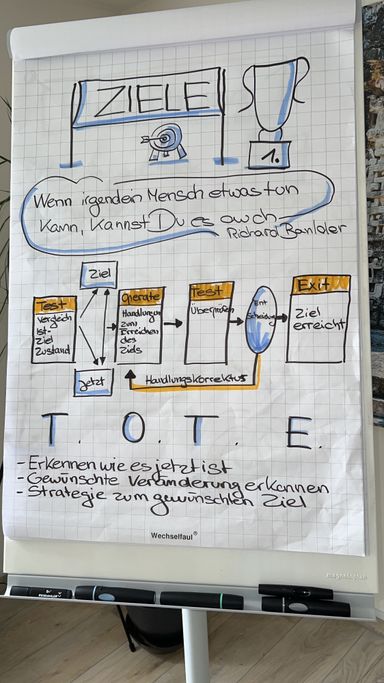 ZIELE
1.
Wenn irgendein Mensch etwas tun
kann, kannst Du es auch
Richard Bandler
Ziel
Test
Vergleich
Ist
Ziel
Zustand
Jetzt
Operate
Handlungen
zum
Erreichen
des
Ziels
Test
Überprüfen
Ent
scheidung
Exit
Ziel
erreicht
Handlungskorrektur
T. O. T. E.
- Erkennen wie es jetzt ist
- Gewünschte Veränderung erkennen
- Strategie zum gewünschten Ziel
Wechselfaul®